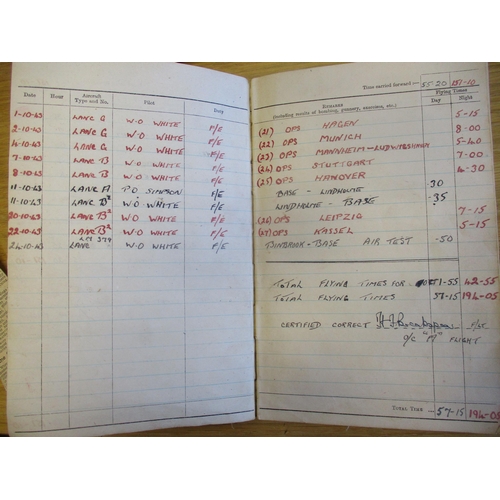 Date Hour Aircraft Type and No. Pilot Duty
1-10-43 LANC G W.O WHITE F/E
2-10-43 LANC G W.O WHITE F/E
4-10-43 LANC G W.O WHITE F/E
7-10-43 LANC B W.O WHITE F/E
8-10-43 LANC B W.O WHITE F/E
11-10-43 LANC A P.O SIMPSON F/E
11-10-43 LANC B² W.O WHITE F/E
20-10-43 LANC B² W.O WHITE F/E
22-10-43 LANC B² W.O WHITE F/E
24-10-43 LANC LM 379 W.O WHITE F/E
Time carried forward 55-20 151-10
REMARKS Flying Times
(including results of bombing, gunnery, exercises, etc.) Day Night
(21) OPS HAGEN 5-15
(22) OPS MUNICH 8-00
(23) OPS MANNHEIM-LUDWIGSHAVEN 5-40
(24) OPS STUTTGART 7-00
(25) OPS HANOVER 4-30
BASE - LINDHOLME 30
LINDHOLME - BASE -35
(26) OPS LEIPZIG 7-15
(27) OPS KASSEL 5-15
BINBROOK-BASE AIR TEST -50
TOTAL FLYING TIMES FOR OCT 1-55 42-55
TOTAL FLYING TIMES 57-15 194-05
CERTIFIED CORRECT F/LT
O/C FLIGHT
TOTAL TIME 57-15 194-05